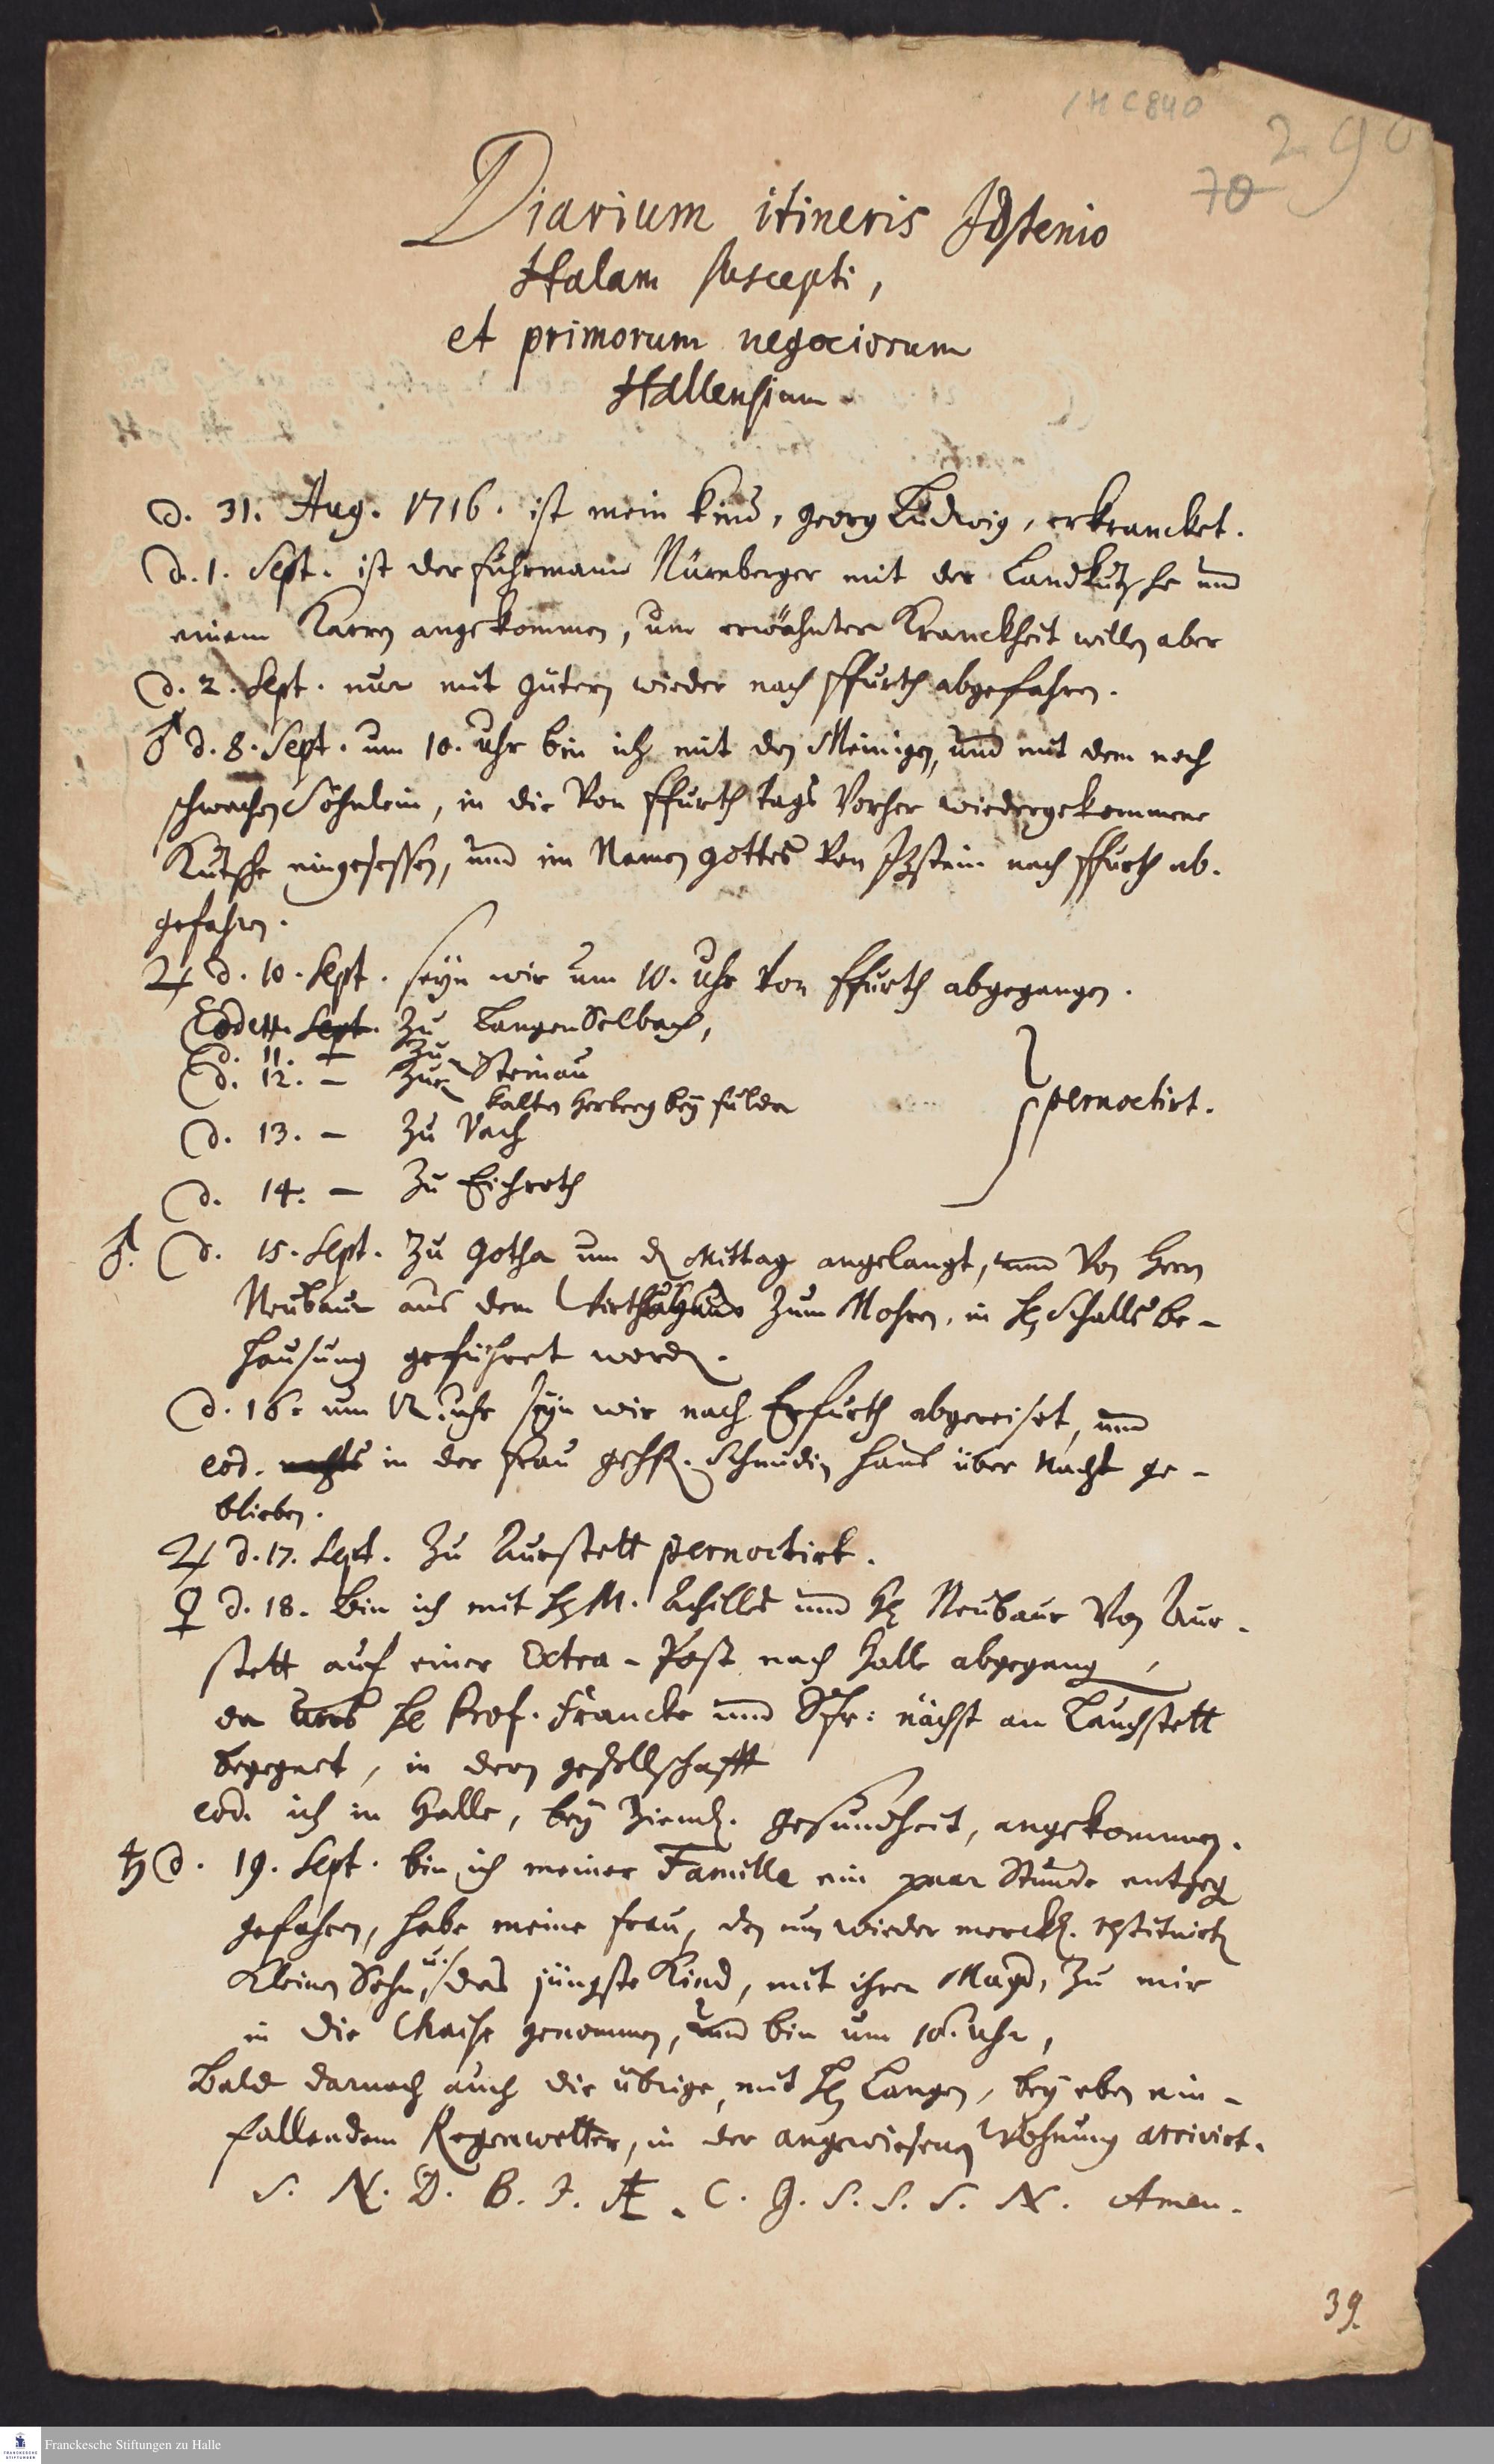 1 H C 840
290
70
Diarium itineris Idstenio
Halam suscepti,
et primorum negociorum
Hallensium.
d. 31. Aug. 1716. ist mein Kind, Georg Ludwig, erkrancket.
d. 1. Sept. ist der Fuhrmann Nürnberger mit der Landkutsche und
einem Karren angekommen, um erwähnter Kranckheit willen aber
d. 2. Sept. nur mit Gütern wieder nach Ffurth abgefahren.
♂ d. 8. Sept. um 10. Uhr bin ich mit den Meinigen, und mit dem noch
schwachen Söhnlein, in die von Ffurth tags vorher wiedergekommene
Kutsche eingesessen, und im Namen Gottes von Itzstein nach Ffurth ab-
gefahren.
♃ d. 10. Sept. seyn wir um 10. Uhr von Ffurth abgegangen.
Eodem Sept. zu LangenSelbach,
d. 11. – zu Steinau
d. 12. – zur kalten Herberg bey Fulda
d. 13. – zu Vach
d. 14. – zu Eichroth
pernoctirt.
♂. d. 15. Sept. zu Gotha um d Mittag angelangt, und von Herrn
Neubaur aus dem zum Mohren, in H. Schalls be-
hausung geführet word.
d. 16. um 12. uhr seyn wir nach Erfurth abgereiset, und
eod. nachts in der Frau Haus über Nacht ge-
blieben.
♃ d. 17. Sept. zu Aurstett pernoctirt.
♀ d. 18. bin ich mit H. M. Achilles und H. Neubaur von Aur-
stett auf einer Extra-Post nach Halle abgegang,
da uns H. Prof. Francke und nächst an Lauchstett
begegnet, in deren gesellschafft
eod. ich in Halle, bey ziemL. gesundheit, angekommen.
♄ d. 19. Sept. bin ich meiner Familie ein paar Stunde entgeg
gefahren, habe meine Frau, den nun wieder merckl. restituirten
kleinen Sohn, u. das jüngste Kind, mit ihrer Magd, zu mir
in die Chaise genommen, und bin um 10. uhr,
Bald darnach auch die übrige, mit H. Langen, bey eben ein-
fallendem Regenwetter, in der angewiesenen Wohnung arrivirt.
S. N. D. B. I. Æ. C. G. S. S. S. N. Amen.
39.
Franckesche Stiftungen zu Halle
FRANCKESCHE
STIFTUNGEN